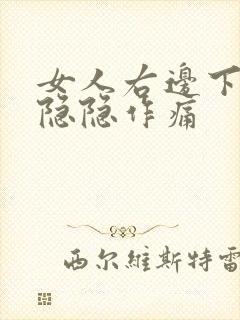 女人右邊下
隐隐作痛
西尔維斯特雷